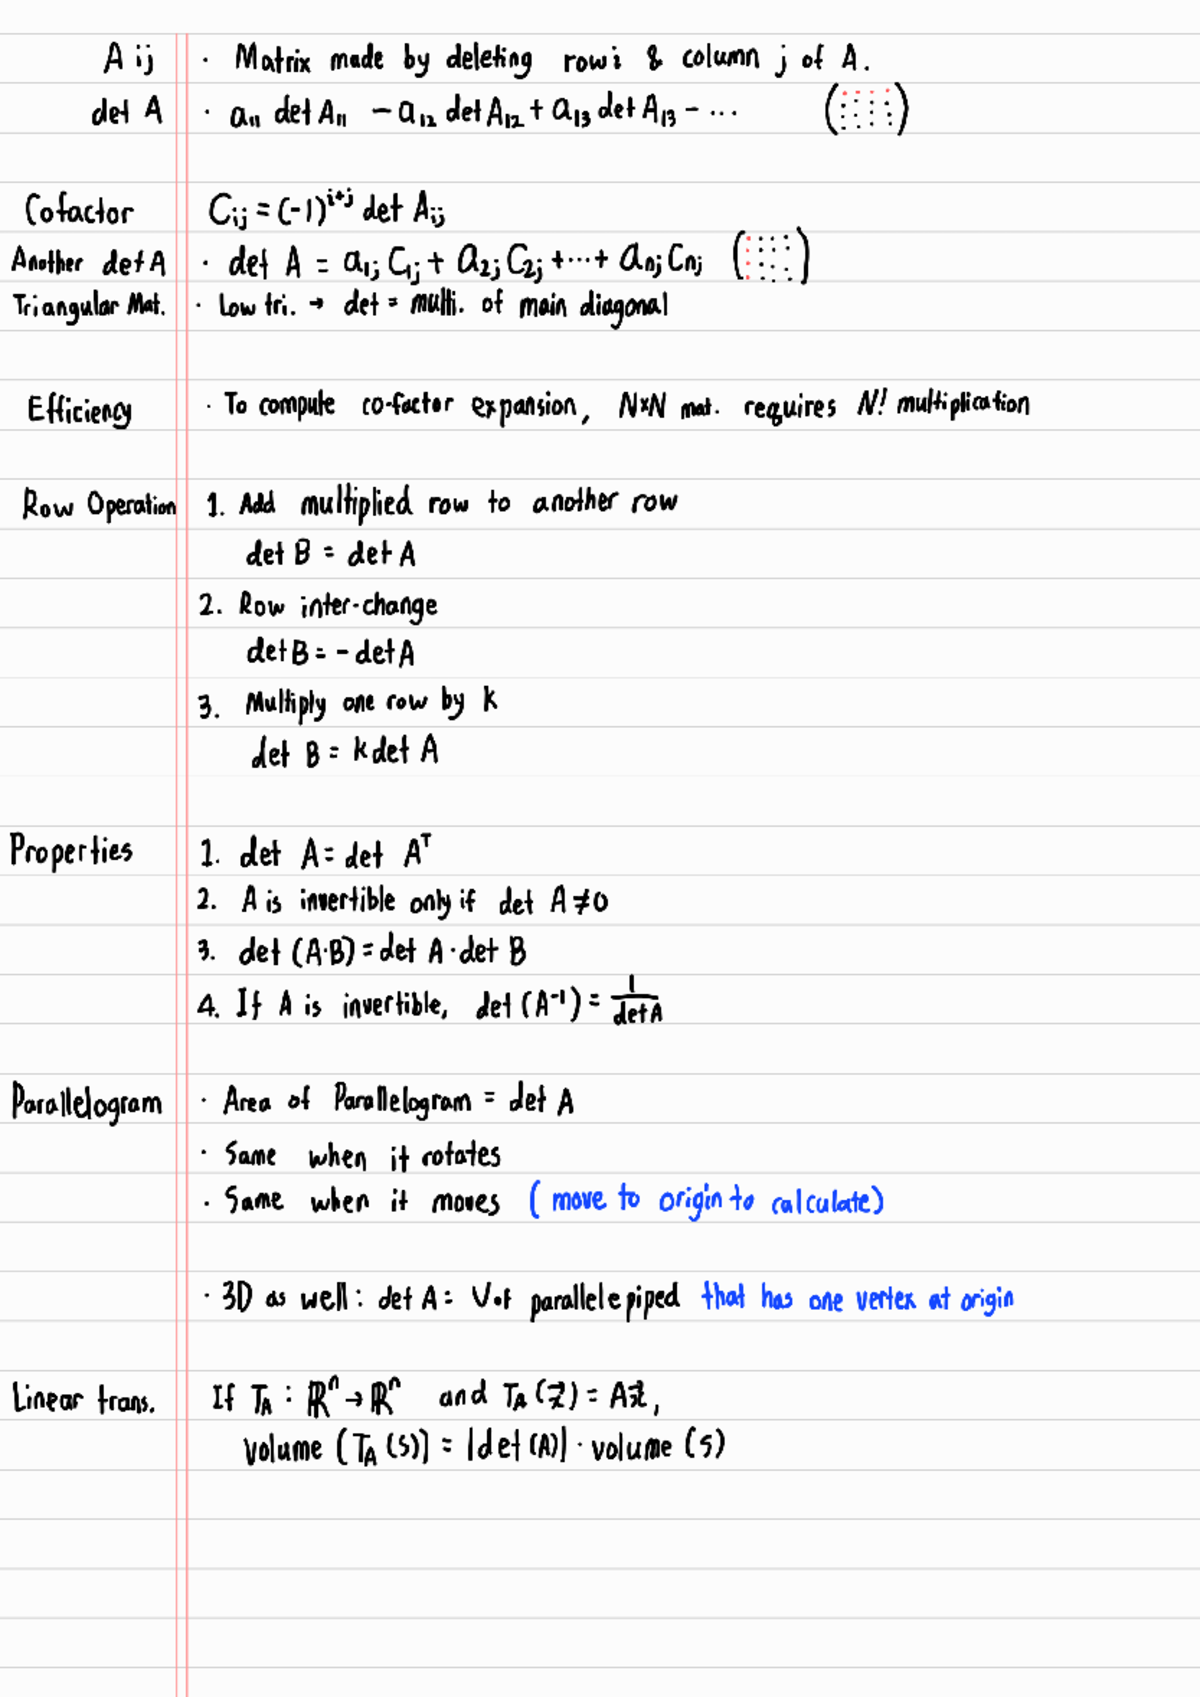 A ij · Matrix made by deleting row i & column j of A.
det A · a₁₁ det A₁₁ - a₁₂ det A₁₂ + a₁₃ det A₁₃ - ...
Cofactor C_ij = (-1)^{i+j} det A_ij
Another det A · det A = a₁j C₁j + a₂j C₂j + ... + a_nj C_nj
Triangular Mat. · Low tri. → det = multi. of main diagonal
Efficiency · To compute co-factor expansion, N×N mat. requires N! multiplication
Row Operation 1. Add multiplied row to another row
det B = det A
2. Row inter-change
det B = - det A
3. Multiply one row by k
det B = k det A
Properties 1. det A = det Aᵀ
2. A is invertible only if det A ≠ 0
3. det (A·B) = det A · det B
4. If A is invertible, det (A⁻¹) = 1/det A
Parallelogram · Area of Parallelogram = det A
· Same when it rotates
· Same when it moves (move to origin to calculate)
· 3D as well: det A = V of parallelepiped that has one vertex at origin
Linear trans. If T_A : ℝⁿ → ℝⁿ and T_A (x⃗) = Ax⃗,
volume (T_A (S)] = |det (A)| · volume (S)